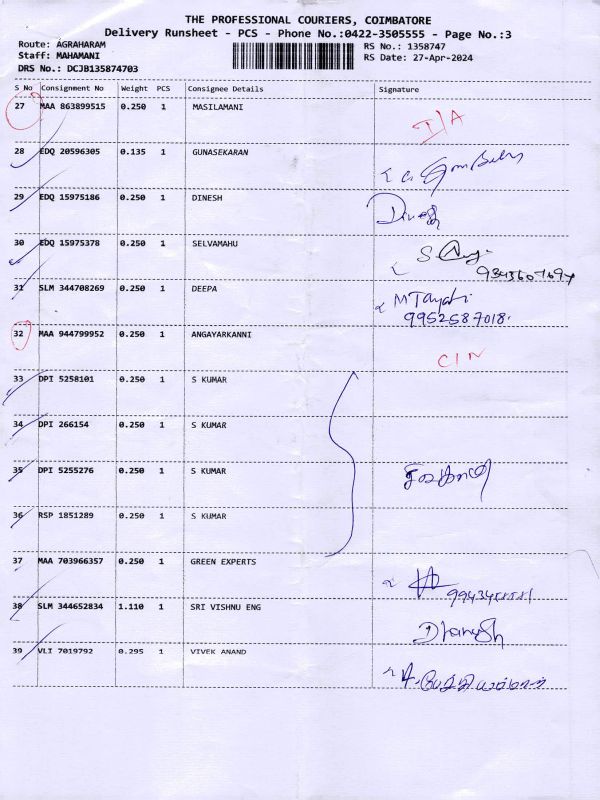 THE PROFESSIONAL COURIERS, COIMBATORE
Delivery Runsheet - PCS - Phone No.:0422-3505555 - Page No.:3
Route: AGRAHARAM RS No.: 1358747
Staff: MAHAMANI RS Date: 27-Apr-2024
DRS No.: DCJB135874703
S No Consignment No Weight PCS Consignee Details Signature
27 MAA 863899515 0.250 1 MASILAMANI
I/A
28 EDQ 20596305 0.135 1 GUNASEKARAN
29 EDQ 15975186 0.250 1 DINESH
Dinesh
30 EDQ 15975378 0.250 1 SELVAMAHU
31 SLM 344708269 0.250 1 DEEPA
9952587018.
32 MAA 944799952 0.250 1 ANGAYARKANNI
CIN
33 DPI 5258101 0.250 1 S KUMAR
34 DPI 266154 0.250 1 S KUMAR
35 DPI 5255276 0.250 1 S KUMAR
36 RSP 1851289 0.250 1 S KUMAR
37 MAA 703966357 0.250 1 GREEN EXPERTS
38 SLM 344652834 1.110 1 SRI VISHNU ENG
Dhanush
39 VLI 7019792 0.295 1 VIVEK ANAND